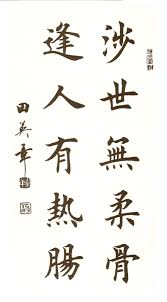 沙世無柔骨
逢人有熱腸
田英章